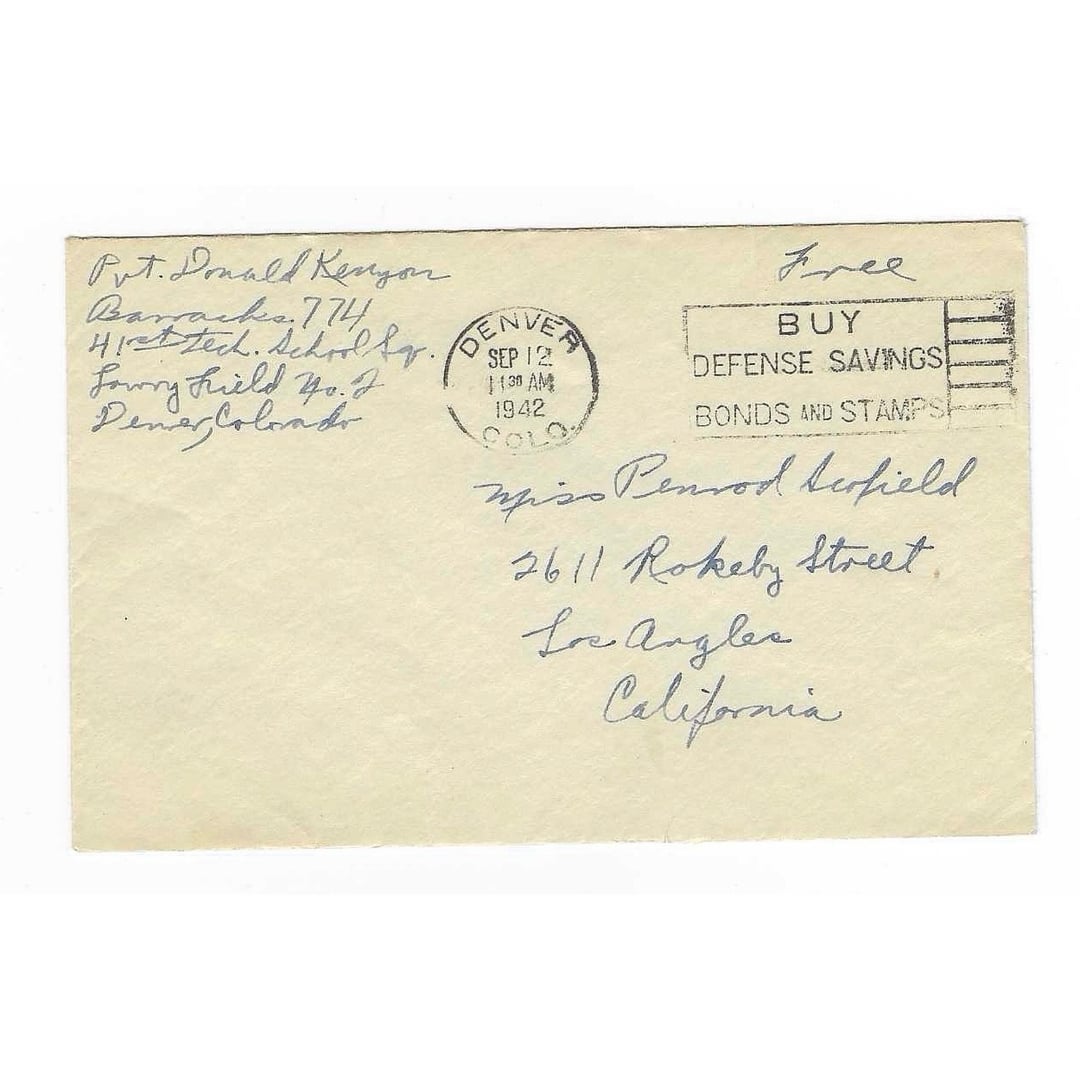 Pvt. Donald Kenyon
Barracks. 774
41st Tech. School Sq.
Lowry Field No. 2
Denver, Colorado
Free
DENVER
SEP 12
11 30 AM
1942
COLO.
BUY
DEFENSE SAVINGS
BONDS AND STAMPS
Miss Penrod Scofield
2611 Rokeby Street
Los Angles
California